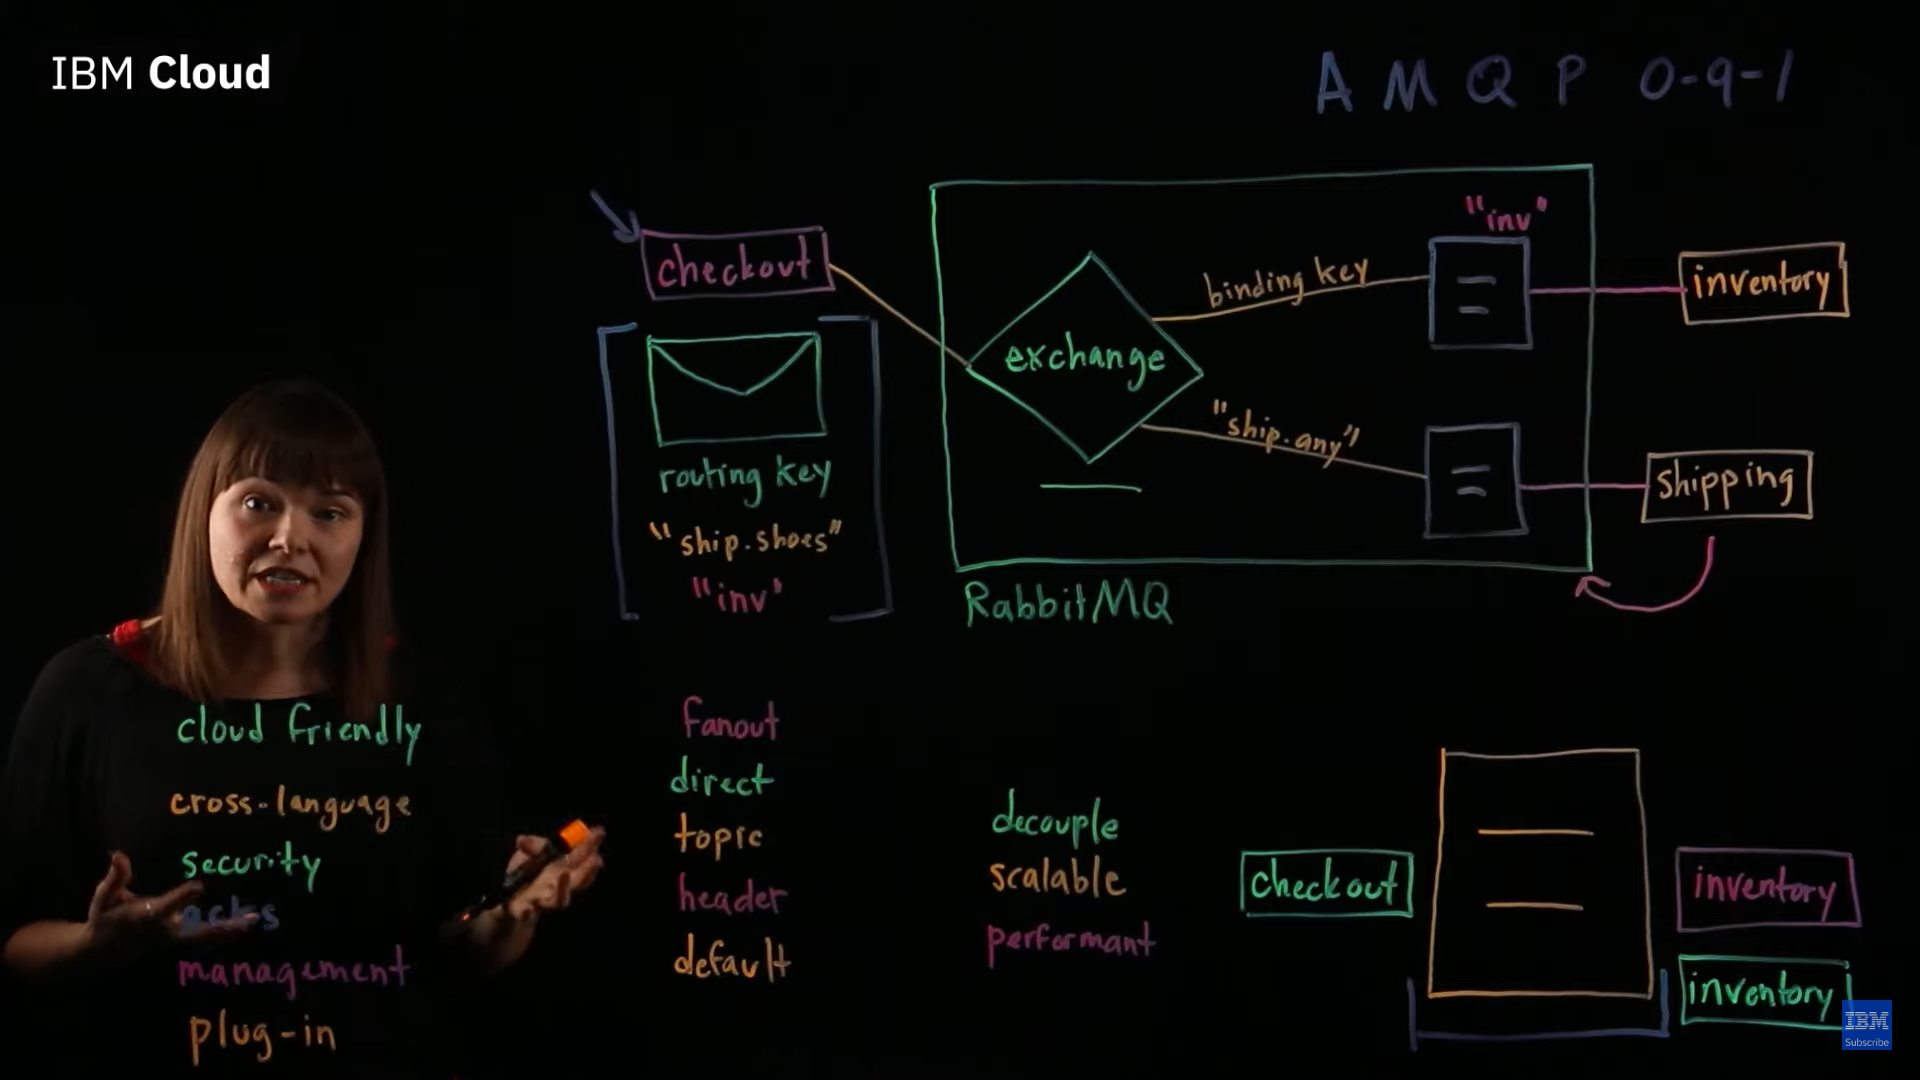 IBM Cloud
AMQP 0-9-1
checkout
routing key
"ship.shoes"
"inv"
exchange
binding key
"ship.any"
"inv"
inventory
shipping
RabbitMQ
cloud friendly
cross-language
security
acks
management
plug-in
fanout
direct
topic
header
default
decouple
scalable
performant
checkout
inventory
inventory
IBM
Subscribe